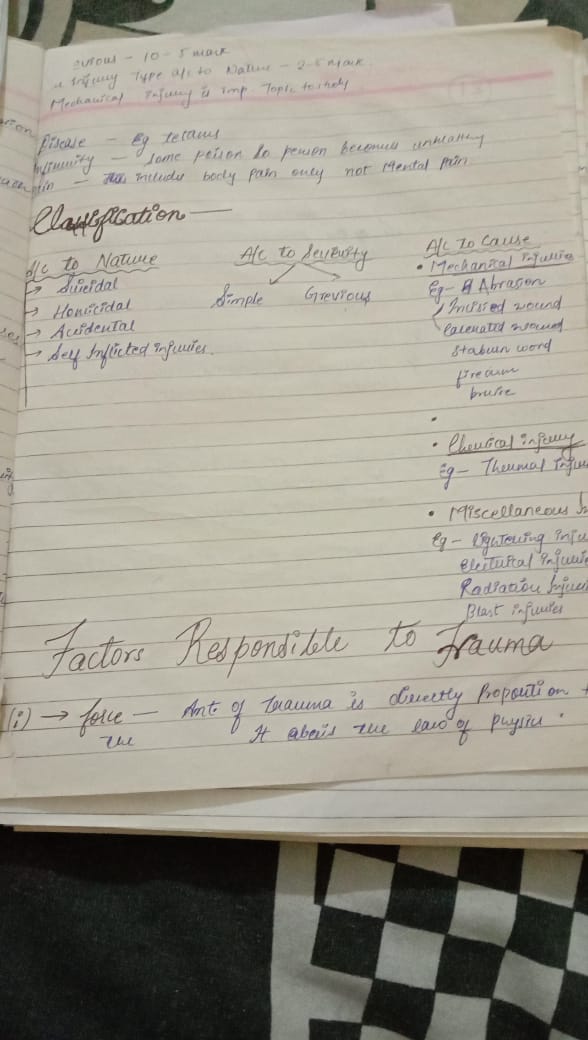 10 - 5 mark
Injury Type a/c to Nature - 2-5 mark.
Mechanical Injury is imp. Topic to study
Disease - Eg tetanus
Infirmity - some poison to person becomes unhealthy
Pain - include body pain only not Mental pain
Classification -
A/c to Nature
→ Suicidal
→ Homicidal
→ Accidental
→ Self Inflicted injuries.
A/c to Severity
Simple Grevious
A/c To Cause
• Mechanical injuries
Eg - Abrasion
Incised wound
Lacerated wound
Stabum word
firearm
bruise
•
• Chemical injury
Eg - Thermal
• Miscellaneous
Eg - lightening
Electurical
Radiation
Blast injuries
Factors Responsible to Trauma
(i) → force - Amt of Trauma is directly Propotion
the It abeis the law of physics.